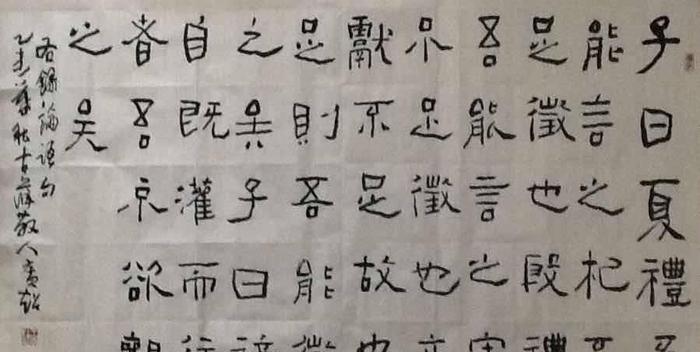 子曰夏禮吾
能言之杞不
足徵也殷禮
吾能言之宋
不足徵也文
獻不足故也
足則吾能徵
之矣子曰禘
自既灌而往
者吾不欲觀
之矣
右錄論語句
乙未秋古散人